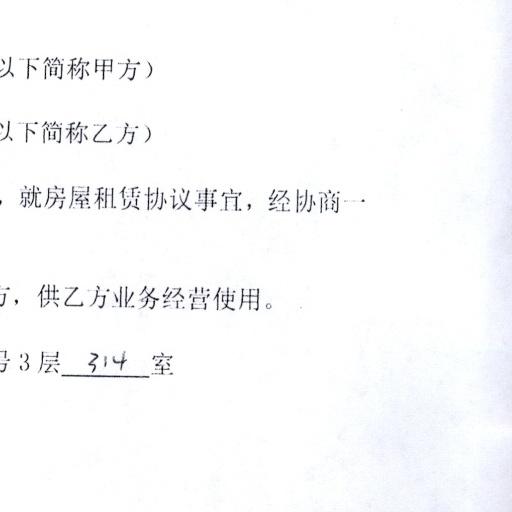 以下简称甲方）
以下简称乙方）
，就房屋租赁协议事宜，经协商一
方，供乙方业务经营使用。
号3层 314 室